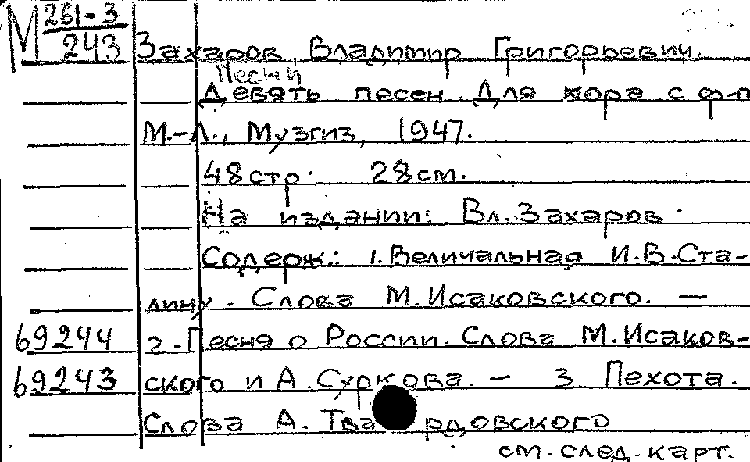 М 261-3
243 Захаров Владимир Григорьевич.
Песни
Девять песен. Для хора с ф-п
М.-Л., Музгиз, 1947.
48 стр. 28 см.
На издании: Вл. Захаров.
Содерж.: 1. Величальная И.В. Ста-
лину. Слова М. Исаковского. —
69244 2. Песня о России. Слова М. Исаков-
69243 ского и А. Суркова. — 3 Пехота.
Слова А. Твардовского
см. след. карт.